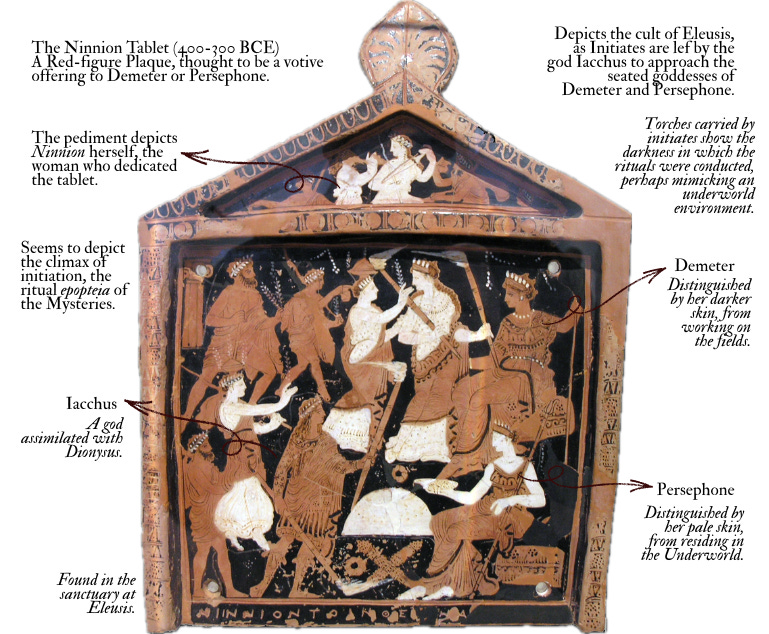 The Ninnion Tablet (400-300 BCE)
A Red-figure Plaque, thought to be a votive
offering to Demeter or Persephone.
Depicts the cult of Eleusis,
as Initiates are lef by the
god Iacchus to approach the
seated goddesses of
Demeter and Persephone.
The pediment depicts
Ninnion herself, the
woman who dedicated
the tablet.
Torches carried by
initiates show the
darkness in which the
rituals were conducted,
perhaps mimicking an
underworld
environment.
Seems to depict
the climax of
initiation, the
ritual epopteia of
the Mysteries.
Demeter
Distinguished
by her darker
skin, from
working on
the fields.
Iacchus
A god
assimilated with
Dionysus.
Persephone
Distinguished by
her pale skin,
from residing in
the Underworld.
Found in the
sanctuary at
Eleusis.
ΝΙΝΝΙΟΝ